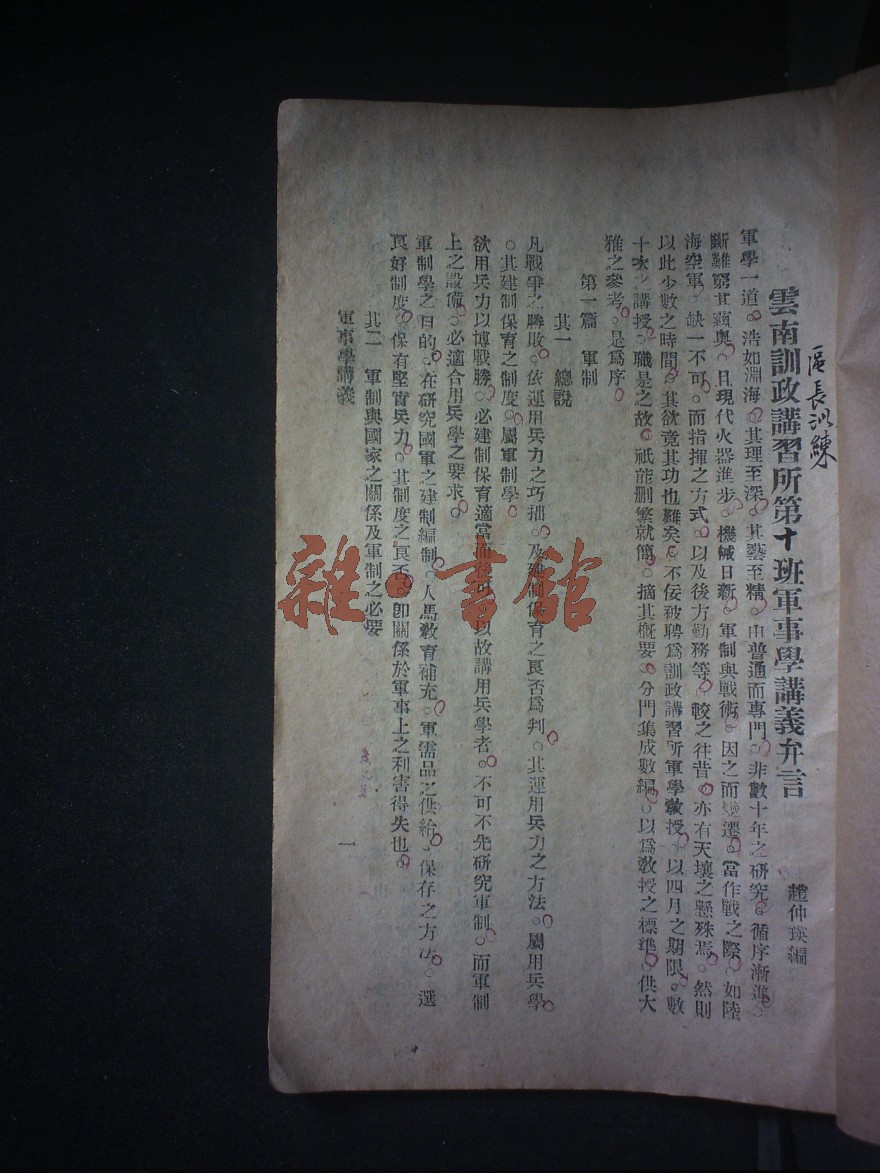 區長訓練
雲南訓政講習所第十班軍事學講義弁言
趙仲瑛編
軍學一道。浩如淵海。其理至深。其藝至精。由普通而專門。非數十年之研究。循序漸進。
斷難窮其蘊奧。且現代火器進步。機械日新。軍制與戰術。因之而變遷。當作戰之際。如陸
海空軍。缺一不可。而指揮之方式。以及後方勤務等。較之往昔。亦有天壤之懸殊焉。然則
以此少數之時間。其欲竟其功也難矣。不佞被聘爲訓政講習所軍學敎授。以四月之期限。數
十次之講授。職是之故。祇能刪繁就簡。摘其概要。分門集成數編。以爲敎授之標準。供大
雅之參考。是爲序。
第一篇 軍制
其一 總說
凡戰爭之勝敗。依運用兵力之巧拙。及建制保育之良否爲判。其運用兵力之方法。屬用兵學
。其建制保育之制度。屬軍制學。
欲用兵力以博戰勝。必建制保育適當而後可。以故講用兵學者。不可不先研究軍制。而軍制
上之設備。必適合用兵學之要求。
軍制學之目的。在研究國軍之建制編制。人馬敎育補充。軍需品之供給、保存之方法。選
良好制度。保有堅實兵力。其制度之良否。卽關係於軍事上之利害得失也。
其二 軍制與國家之關係及軍制之必要
軍事學講義
一
雜·書館